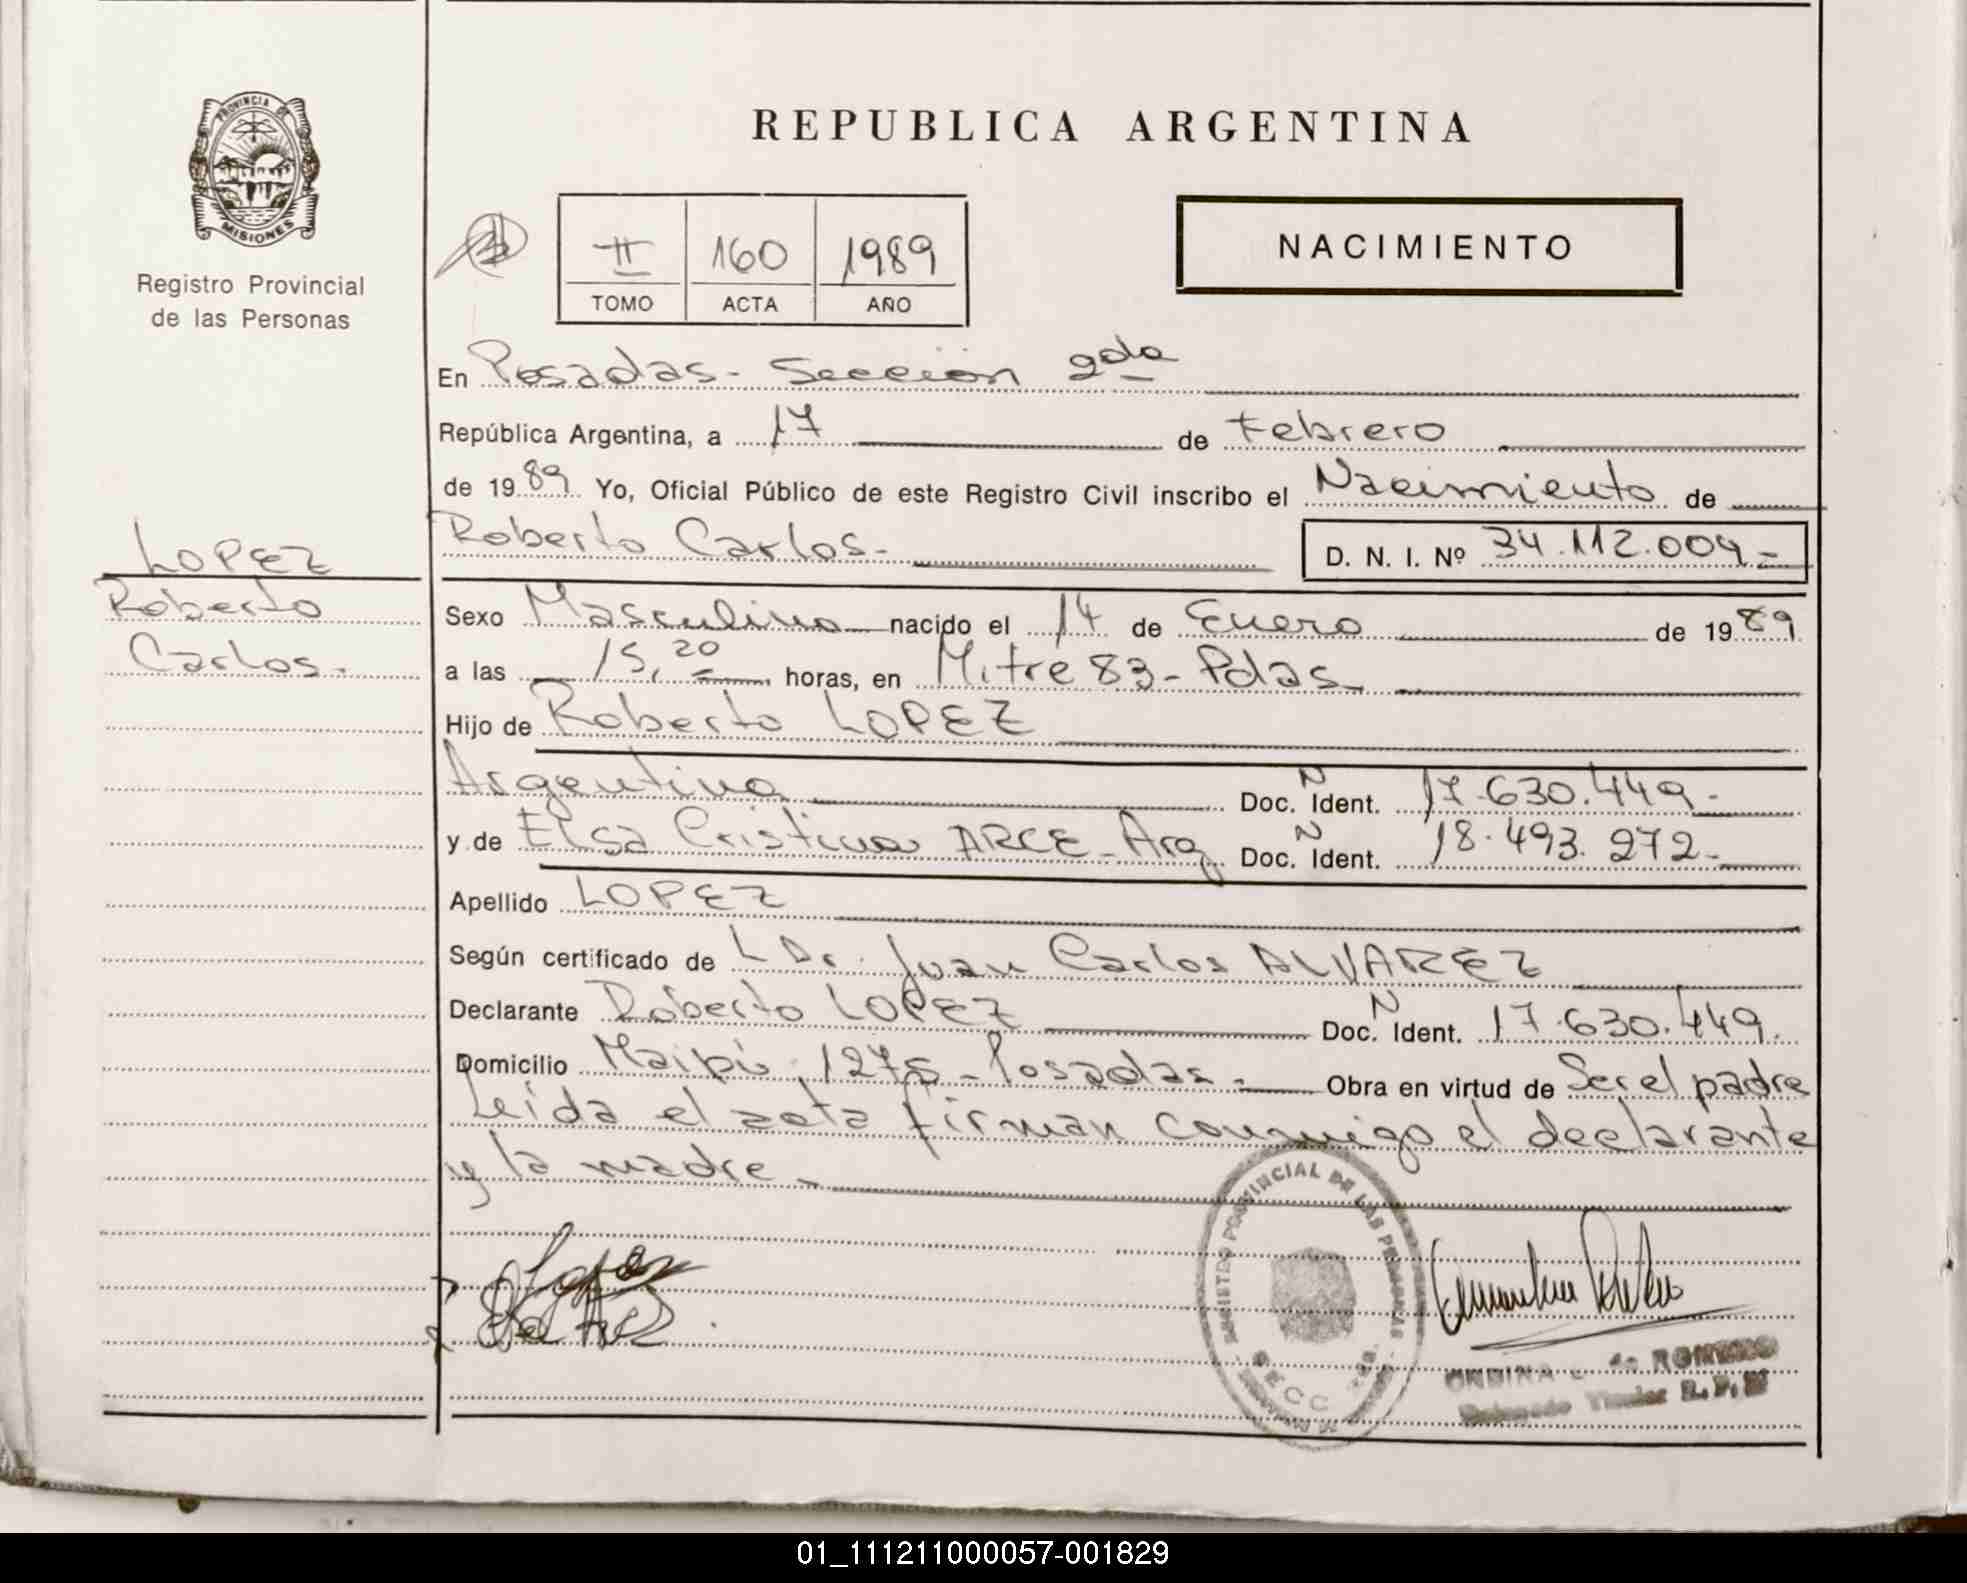 PROVINCIA DE
MISIONES
Registro Provincial
de las Personas
REPUBLICA ARGENTINA
II 160 1989
TOMO ACTA AÑO
NACIMIENTO
En Posadas - Sección 2da
República Argentina, a 17 de Febrero
de 1989 Yo, Oficial Público de este Registro Civil inscribo el Nacimiento de
Roberto Carlos.- D. N. I. Nº 34.112.004.-
LOPEZ
Roberto
Carlos.-
Sexo Masculino nacido el 14 de Enero de 1989
a las 15,20 horas, en Mitre 83 - Pdas
Hijo de Roberto LOPEZ
Argentino Doc. N Ident. 17.630.449.-
y de Elsa Cristina ARCE - Arg Doc. N Ident. 18.493.272.-
Apellido LOPEZ
Según certificado de L Dr. Juan Carlos ALVAREZ
Declarante Roberto LOPEZ Doc. N Ident. 17.630.449.
Domicilio Maipú 1275 - Posadas.- Obra en virtud de Ser el padre
Leída el acta firman conmigo el declarante
y la madre.-
PROVINCIAL DE LAS PERSONAS
SECC.
de ROMERO
Titular R. P.
01_111211000057-001829